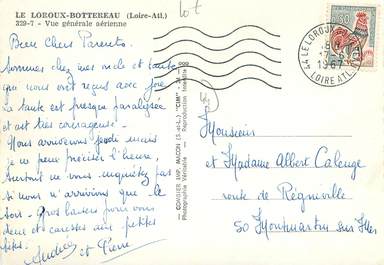 LE LOROUX-BOTTEREAU (Loire-Atl.)
329-7 - Vue générale aérienne
lot
Bien Chers Parents.
Sommes chez mes oncle et tante
qui nous ont reçus avec joie
La tante est presque paralysée
et est très courageuse.
Nous arriverons jeudi mais
je ne peux préciser l'heure,
surtout ne vous inquiétez pas
si nous n'arrivions que le
soir. Gros baisers pour vous
deux et caresses aux petites
et Pierre
COMBIER IMP. MACON (S.-et-L.) "CIM"
Photographie Véritable
44 LE LOROUX-BOTTEREAU
1967
LOIRE ATL.
0,30
Monsieur
et Madame Albert Calenge
route de Régnéville
50 Montmartin sur Mer